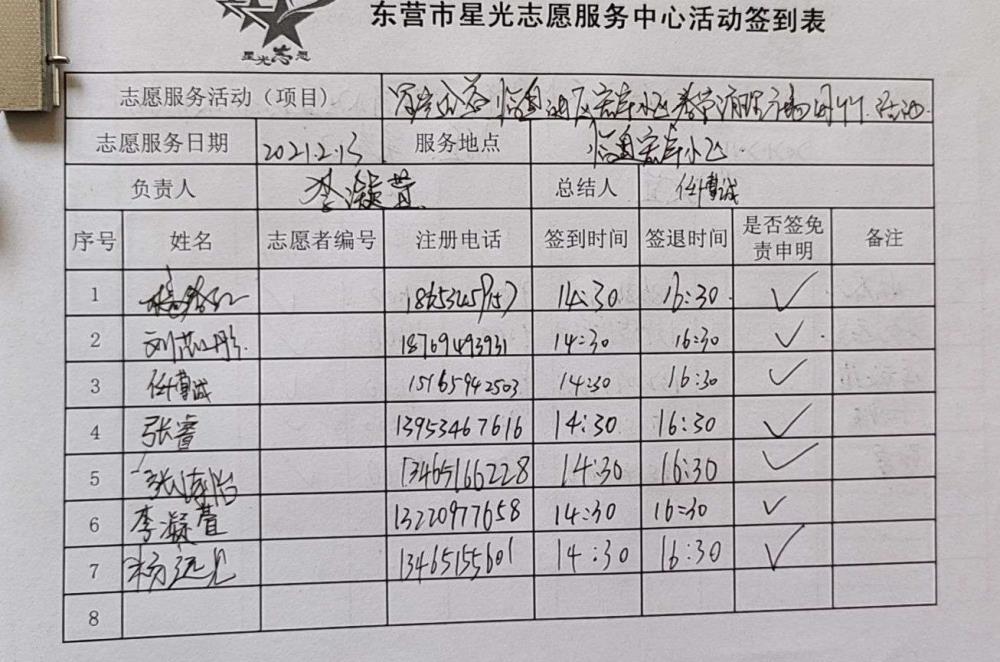 东营市星光志愿服务中心活动签到表
星光志愿
志愿服务活动（项目）
志愿服务日期 2021.2.13 服务地点
负责人 李凝萱 总结人 任博诚
序号 姓名 志愿者编号 注册电话 签到时间 签退时间 是否签免责申明 备注
1 14:30 16:30 ✓
2 刘芯彤 18769493931 14:30 16:30 ✓
3 任博诚 15165942503 14:30 16:30 ✓
4 张睿 13953467616 14:30 16:30 ✓
5 13465166228 14:30 16:30 ✓
6 李凝萱 13220977658 14:30 16:30 ✓
7 杨远见 13465155601 14:30 16:30 ✓
8